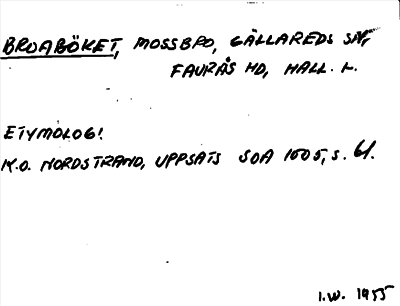 BROABÖKET, MOSSBRO, GÄLLAREDS SN,
FAURÅS HD, HALL. L.
ETYMOLOGI
K.O. NORDSTRAND, UPPSATS SOA 1605, S. 61.
I.W. 1955